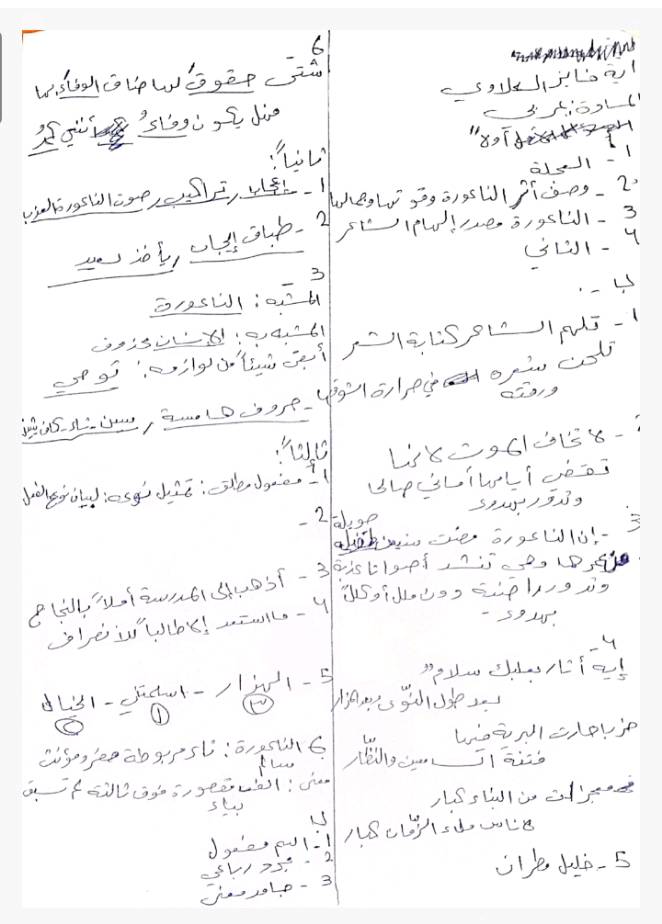 آية فايز السلاوي
المادة: عربي
أولاً"
أ
1 - العجلة
2 - وصف أثر الناعورة وقوتها وجمالها
3 - الناعورة مصدر إلهام الشاعر
4 - الثاني
ب -
1 - تلهم الشاعر كتابة الشعر
تلحن شعره في حرارة الشوق
ورقته
- لا تخاف الموت لأنها
تقضي أيامها أماني
وتدور بهدوء
3 - إن الناعورة مضت سنين طويلة
من عمرها وهي تنشد أصواتا عذبة
وتدور راضية دون ملل أو كلل
بهدوء -
4 -
إيه آثار بعلبك سلام
بعد طول النوى وبعد المزار
حزباحارت البرية فيها
فتنة السامعين والنظار
معجزات من البناء كبار
لأناس ملء الزمان كبار
5 - خليل مطران
6
شتى حقوق لها ضاق الوفاء بها
فهل يكون وفاءً أنني
ثانياً:
1 - تراكيب، صوت الناعورة العذب
2 - طباق إيجاب، يأخذ
3
المشبه: الناعورة
المشبه به: الإنسان محذوف
أبقى شيئاً من لوازمه: توحي
- حروف هامسة، سين -
ثالثاً:
1 - أ مفعول مطلق: تمثيل نوعه: لبيان نوع الفعل
2 -
3 - أذهب إلى المدرسة أملاً بالنجاح
4 - ما استعد إلا طالباً للانصراف
5 - الهزار - اسلمتني - الخيال
3 1 2
6 الناعورة: تاء مربوطة مفرد مؤنث
سالم
معنى: ألف مقصورة فوق ثالثة لم تسبق
بياء
ب
1 - اسم مفعول
2 - مجرد رباعي
3 - جامد معنى